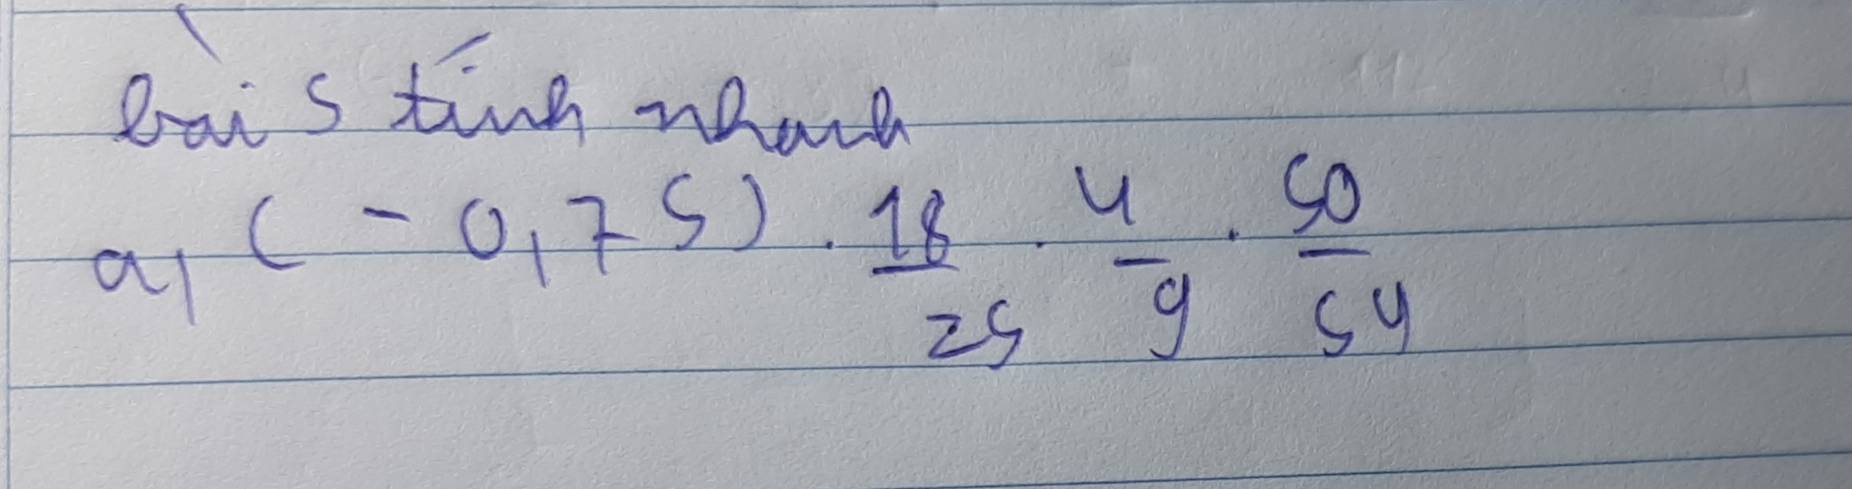 bài 5 tính nhanh
a, (-0,75) . 18/25 . 4/9 . 50/54